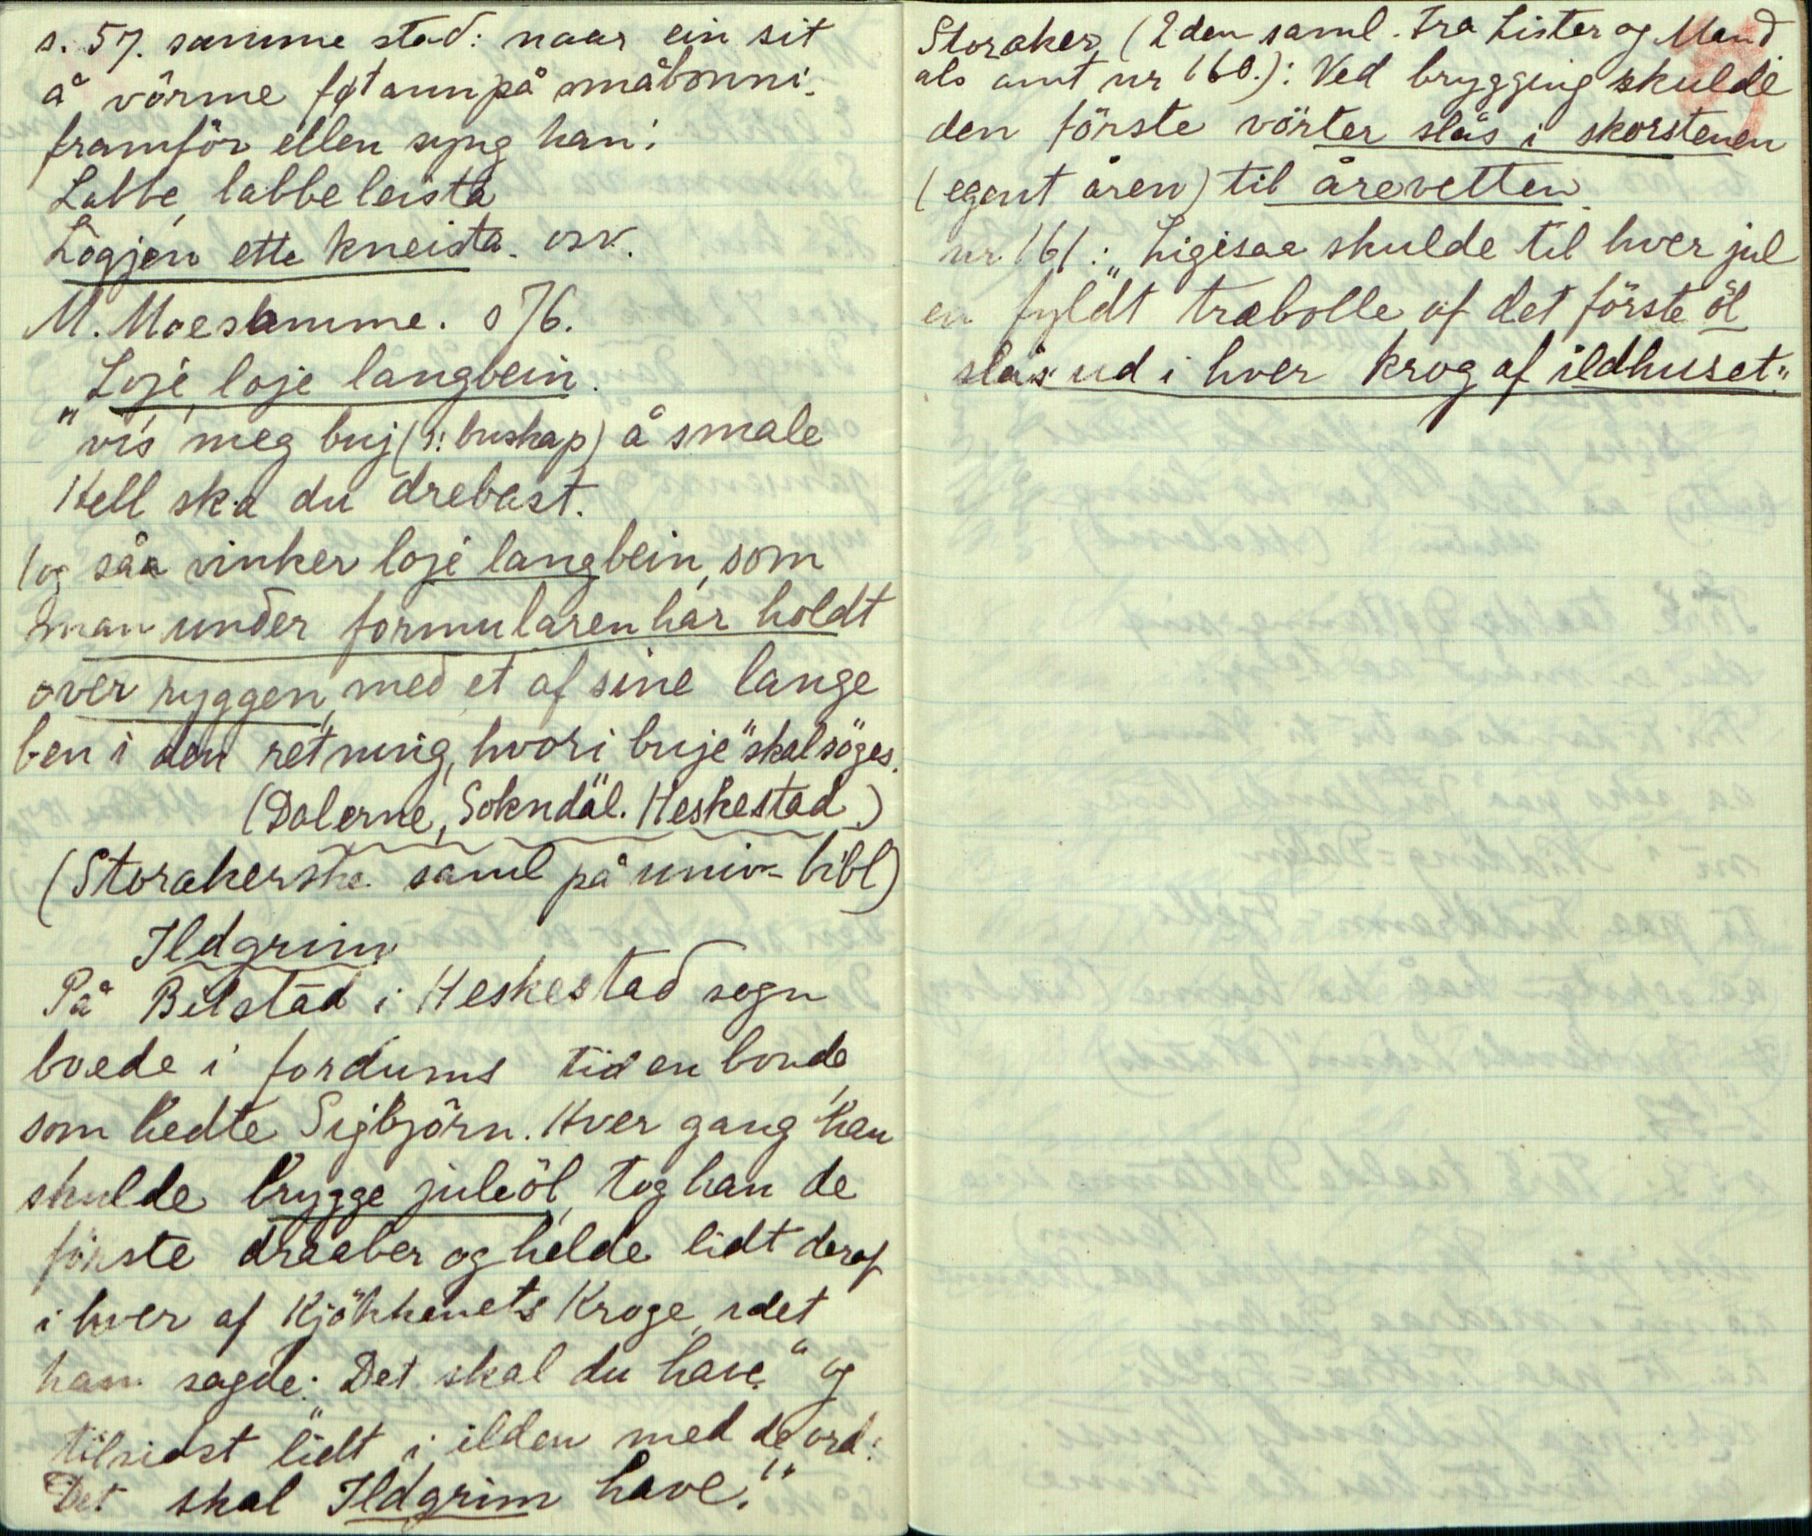 s. 57. samme stad: naar ein sit
å vörme føtann på småbonni
framför ellen syng han:
Labbe, labbe leista
Lögjen ette kneista. osv.
M. Moe samme. s 76.
Loje, loje langbein.
"vis meg buj (ɔ: buskap) å smale
Hell ska du drebast.
(og såa vinker loje langbein, som
man under formularen har holdt
over ryggen, med et af sine lange
ben i den retning, hvori buje" skal söges.
(Dalerne, Sokndal. Heskestad.)
(Storakerske saml på univ-bibl)
Ildgrim
På Bilstad i Heskestad sogn
boede i fordums tid en bonde,
som hedte Sigbjörn. Hver gang han
skulde brygge juleöl, tog han de
förste draaber og helde lidt deraf
i hver af Kjökkenets Kroge, idet
han sagde: "Det skal du have" og
tilsidst lidt i ilden med de ord:
Det skal Ildgrim have!"
Storaker (2den saml. fra Lister og Mand
als amt nr 160.): Ved brygging skulde
den förste vörter slås i skorstenen
(egent åren) til årevetten.
nr. 161: "Ligesaa skulde til hver jul
en fyldt træbolle af det förste öl
slås ud i hver krog af ildhuset."